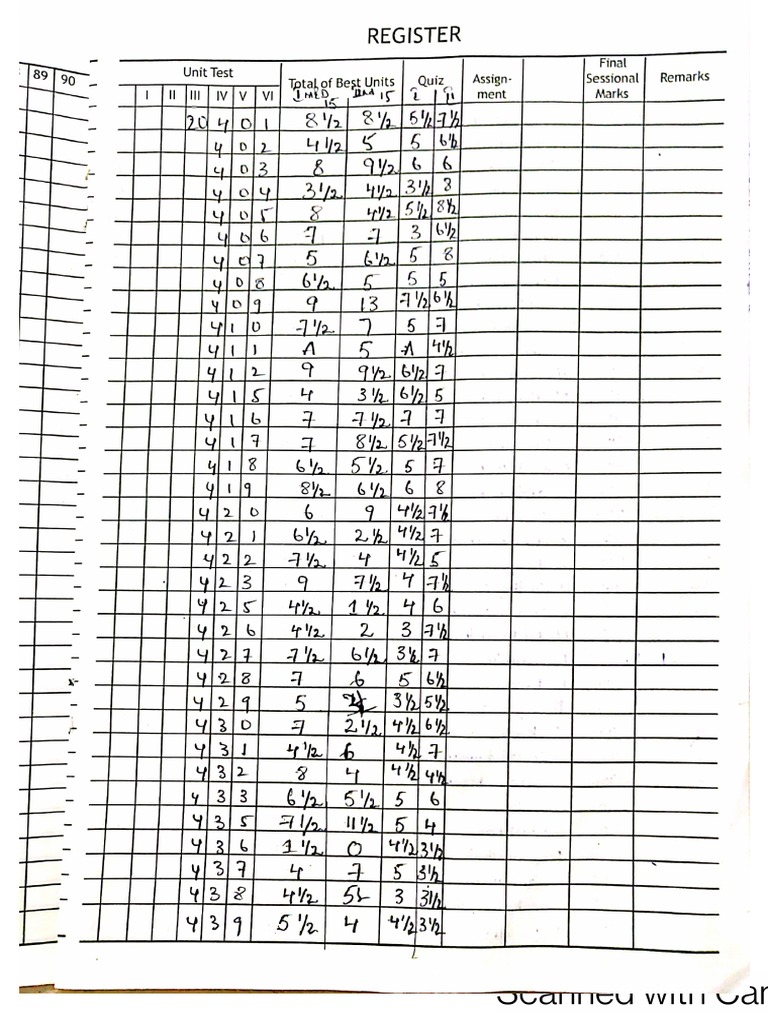 REGISTER
89 90
Unit Test Total of Best Units Quiz Assign-ment Final Sessional Marks Remarks
I II III IV V VI I MED 15 IInd 15 I II
20 4 0 1 8 1/2 8 1/2 5 1/2 7 1/2
4 0 2 4 1/2 5 5 6 1/2
4 0 3 8 9 1/2 6 6
4 0 4 3 1/2 4 1/2 3 1/2 8
4 0 5 8 4 1/2 5 1/2 8 1/2
4 0 6 7 7 3 6 1/2
4 0 7 5 6 1/2 5 8
4 0 8 6 1/2 5 5 5
4 0 9 9 13 7 1/2 6 1/2
4 1 0 7 1/2 7 5 7
4 1 1 A 5 A 4 1/2
4 1 2 9 9 1/2 6 1/2 7
4 1 5 4 3 1/2 6 1/2 5
4 1 6 7 7 1/2 7 7
4 1 7 7 8 1/2 5 1/2 7 1/2
4 1 8 6 1/2 5 1/2 5 7
4 1 9 8 1/2 6 1/2 6 8
4 2 0 6 9 4 1/2 7 1/2
4 2 1 6 1/2 2 1/2 4 1/2 7
4 2 2 7 1/2 4 4 1/2 5
4 2 3 9 7 1/2 4 7 1/2
4 2 5 4 1/2 1 1/2 4 6
4 2 6 4 1/2 2 3 7 1/2
4 2 7 7 1/2 6 1/2 3 1/2 7
4 2 8 7 6 5 6 1/2
4 2 9 5 3 1/2 5 1/2
4 3 0 7 2 1/2 4 1/2 6 1/2
4 3 1 4 1/2 6 4 1/2 7
4 3 2 8 4 4 1/2 4 1/2
4 3 3 6 1/2 5 1/2 5 6
4 3 5 7 1/2 11 1/2 5 4
4 3 6 1 1/2 0 4 1/2 3 1/2
4 3 7 4 7 5 3 1/2
4 3 8 4 1/2 3 3 1/2
4 3 9 5 1/2 4 4 1/2 3 1/2
Scanned with Car